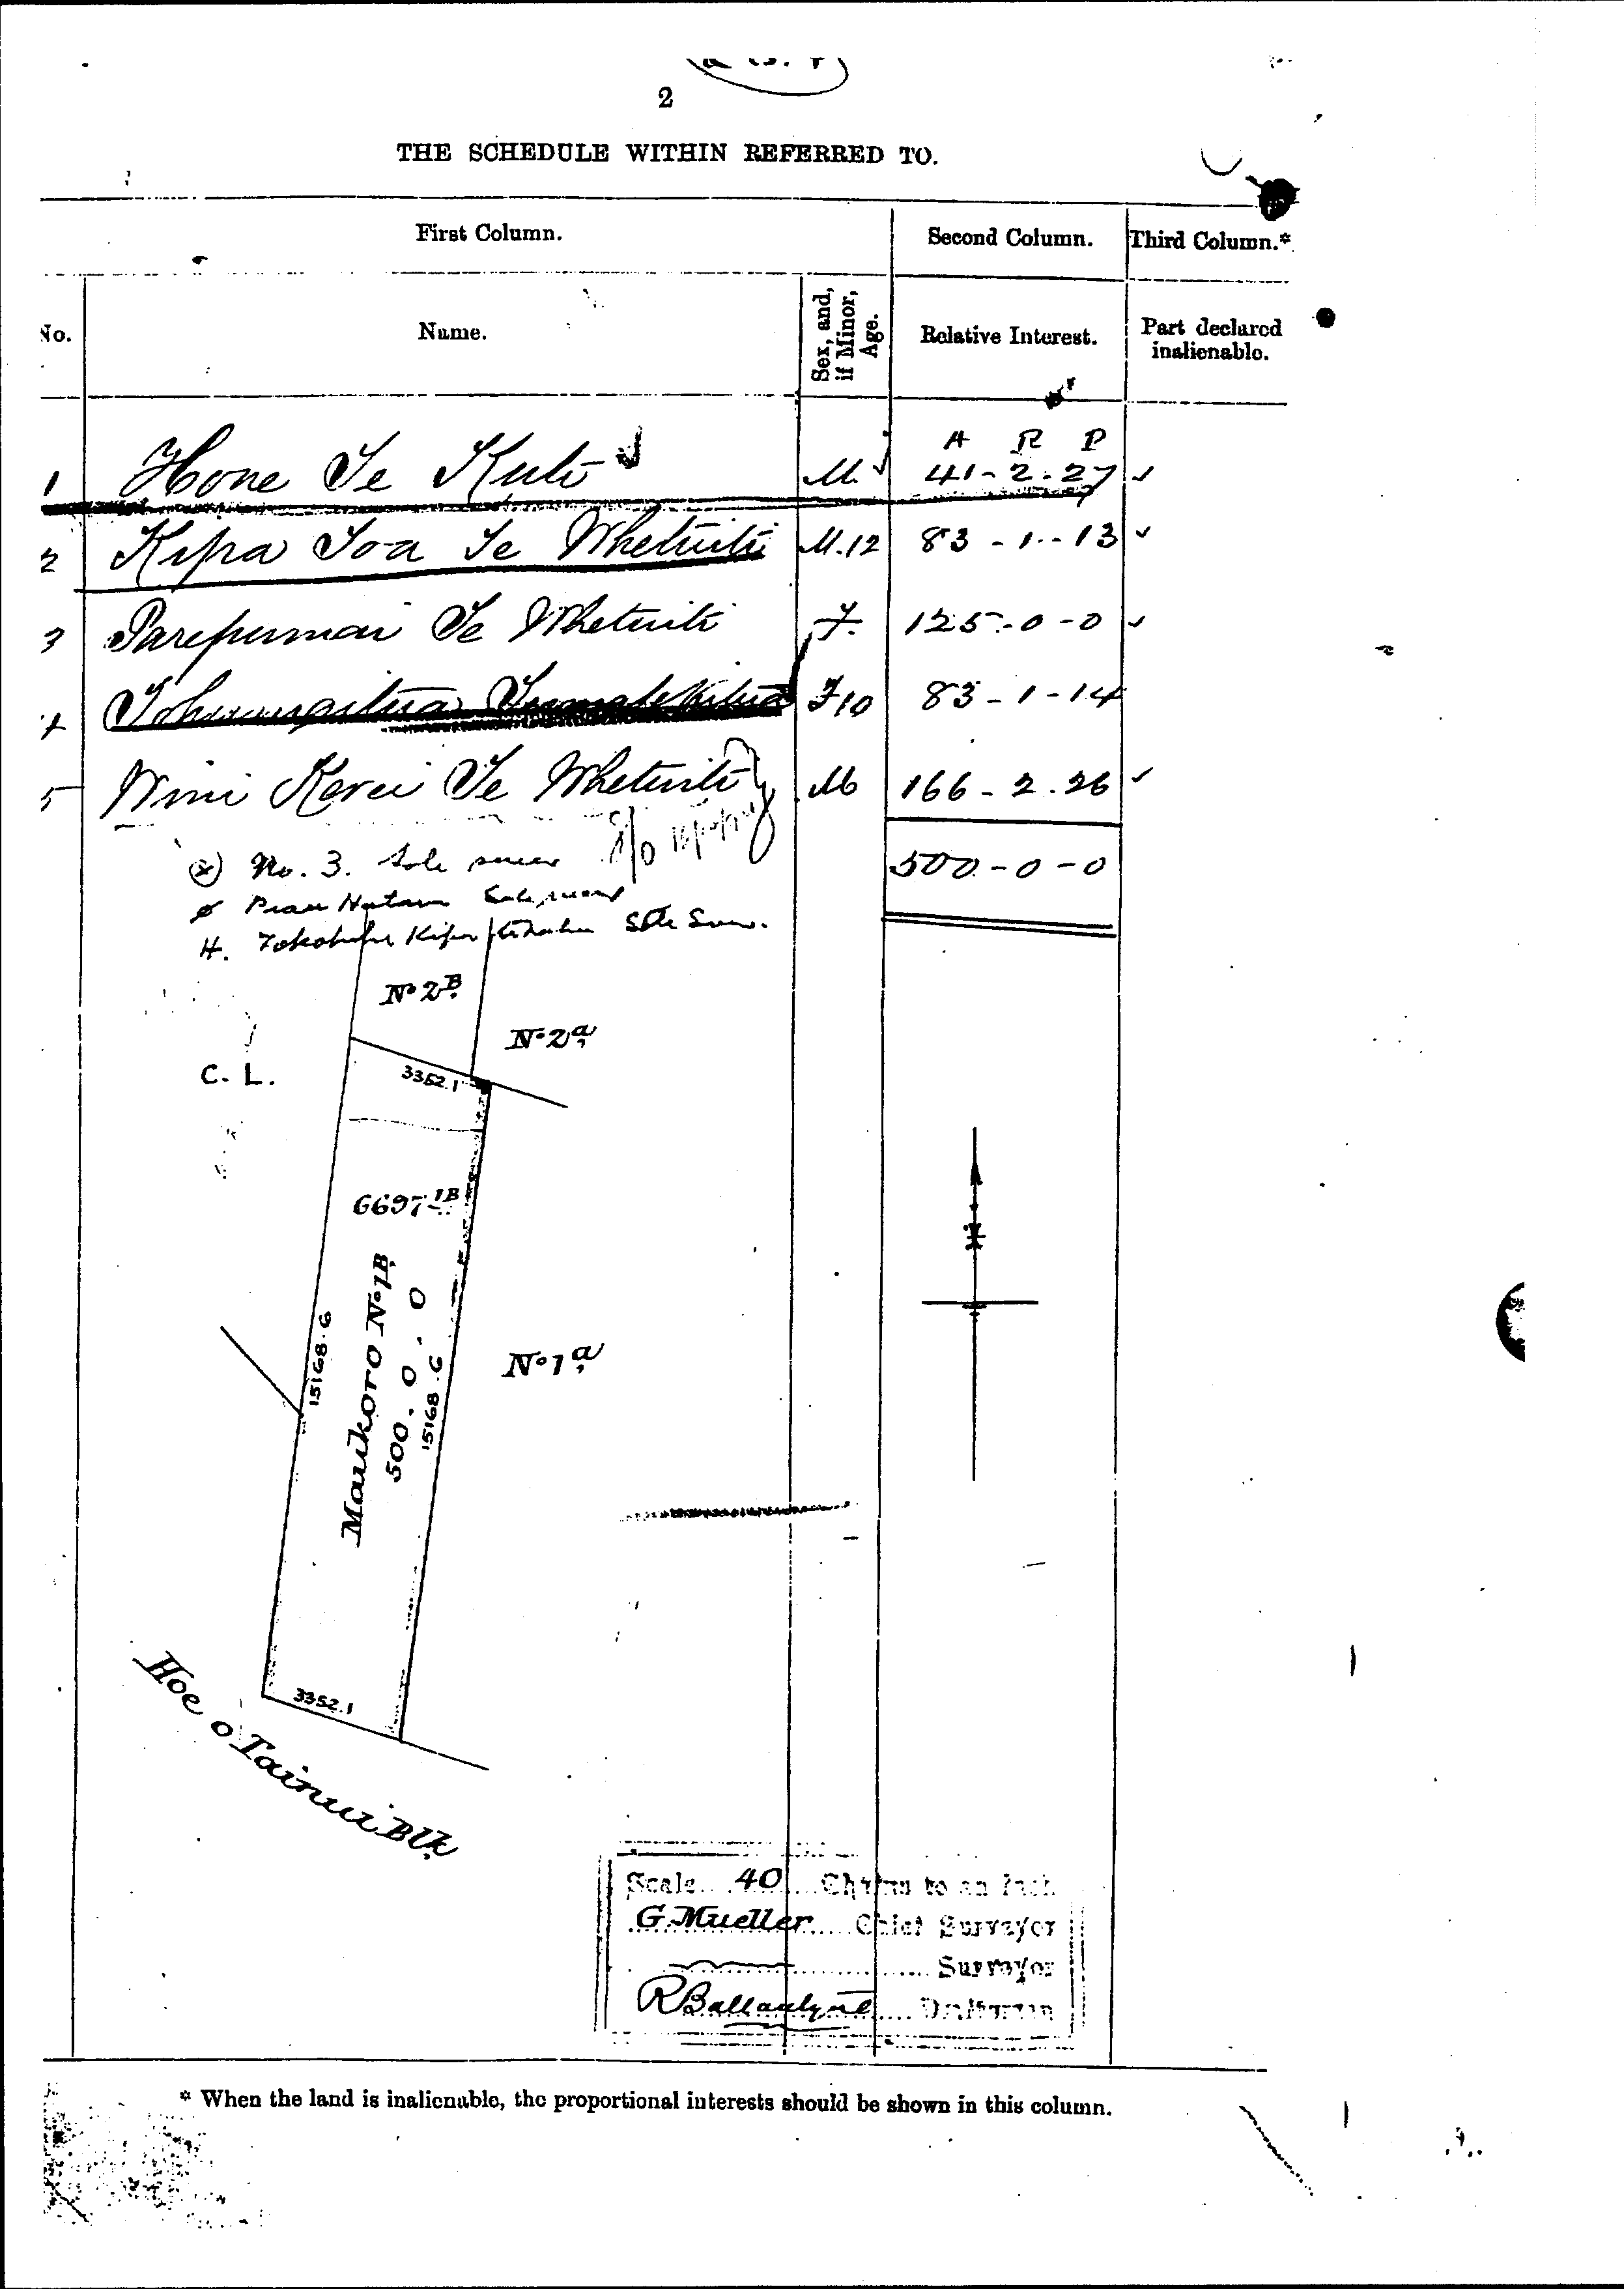 2
THE SCHEDULE WITHIN REFERRED TO.
First Column. Second Column. Third Column.*
No. Name. Sex, and, if Minor, Age. Relative Interest. Part declared inalienable.
A R P
1 Hone Te M. 41-2-27
2 Kipa Toa Te Whetuiti M.12 83-1-13
3 Parepumai Te Whetuiti F. 125-0-0
4 F10 83-1-14
5 Wini Kerei Te Whetuiti M 166-2-26
No. 3. Sole S/o
500-0-0
4. Kipa Sole
No 2B
No 2a
C. L.
3352.1
6697 1B
Maukoro No 1B
500.0.0
15168.6
15168.6
No 1a
3352.1
Hoe o Tainui Blk.
Scale 40 Chains to an Inch
G. Mueller Chief Surveyor
Surveyor
R Ballantyne Draftsman
* When the land is inalienable, the proportional interests should be shown in this column.